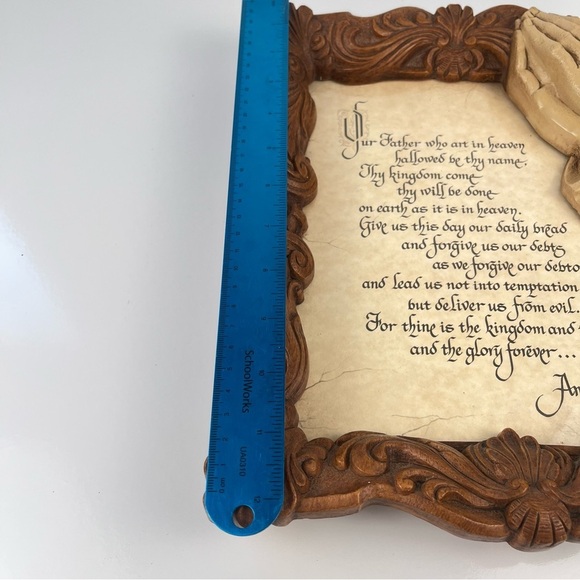 Our Father who art in heaven
hallowed be thy name.
Thy kingdom come
thy will be done
on earth as it is in heaven.
Give us this day our daily bread
and forgive us our debts
as we forgive our debto
and lead us not into temptation
but deliver us from evil.
For thine is the kingdom and
and the glory forever...
SchoolWorks
UA0310